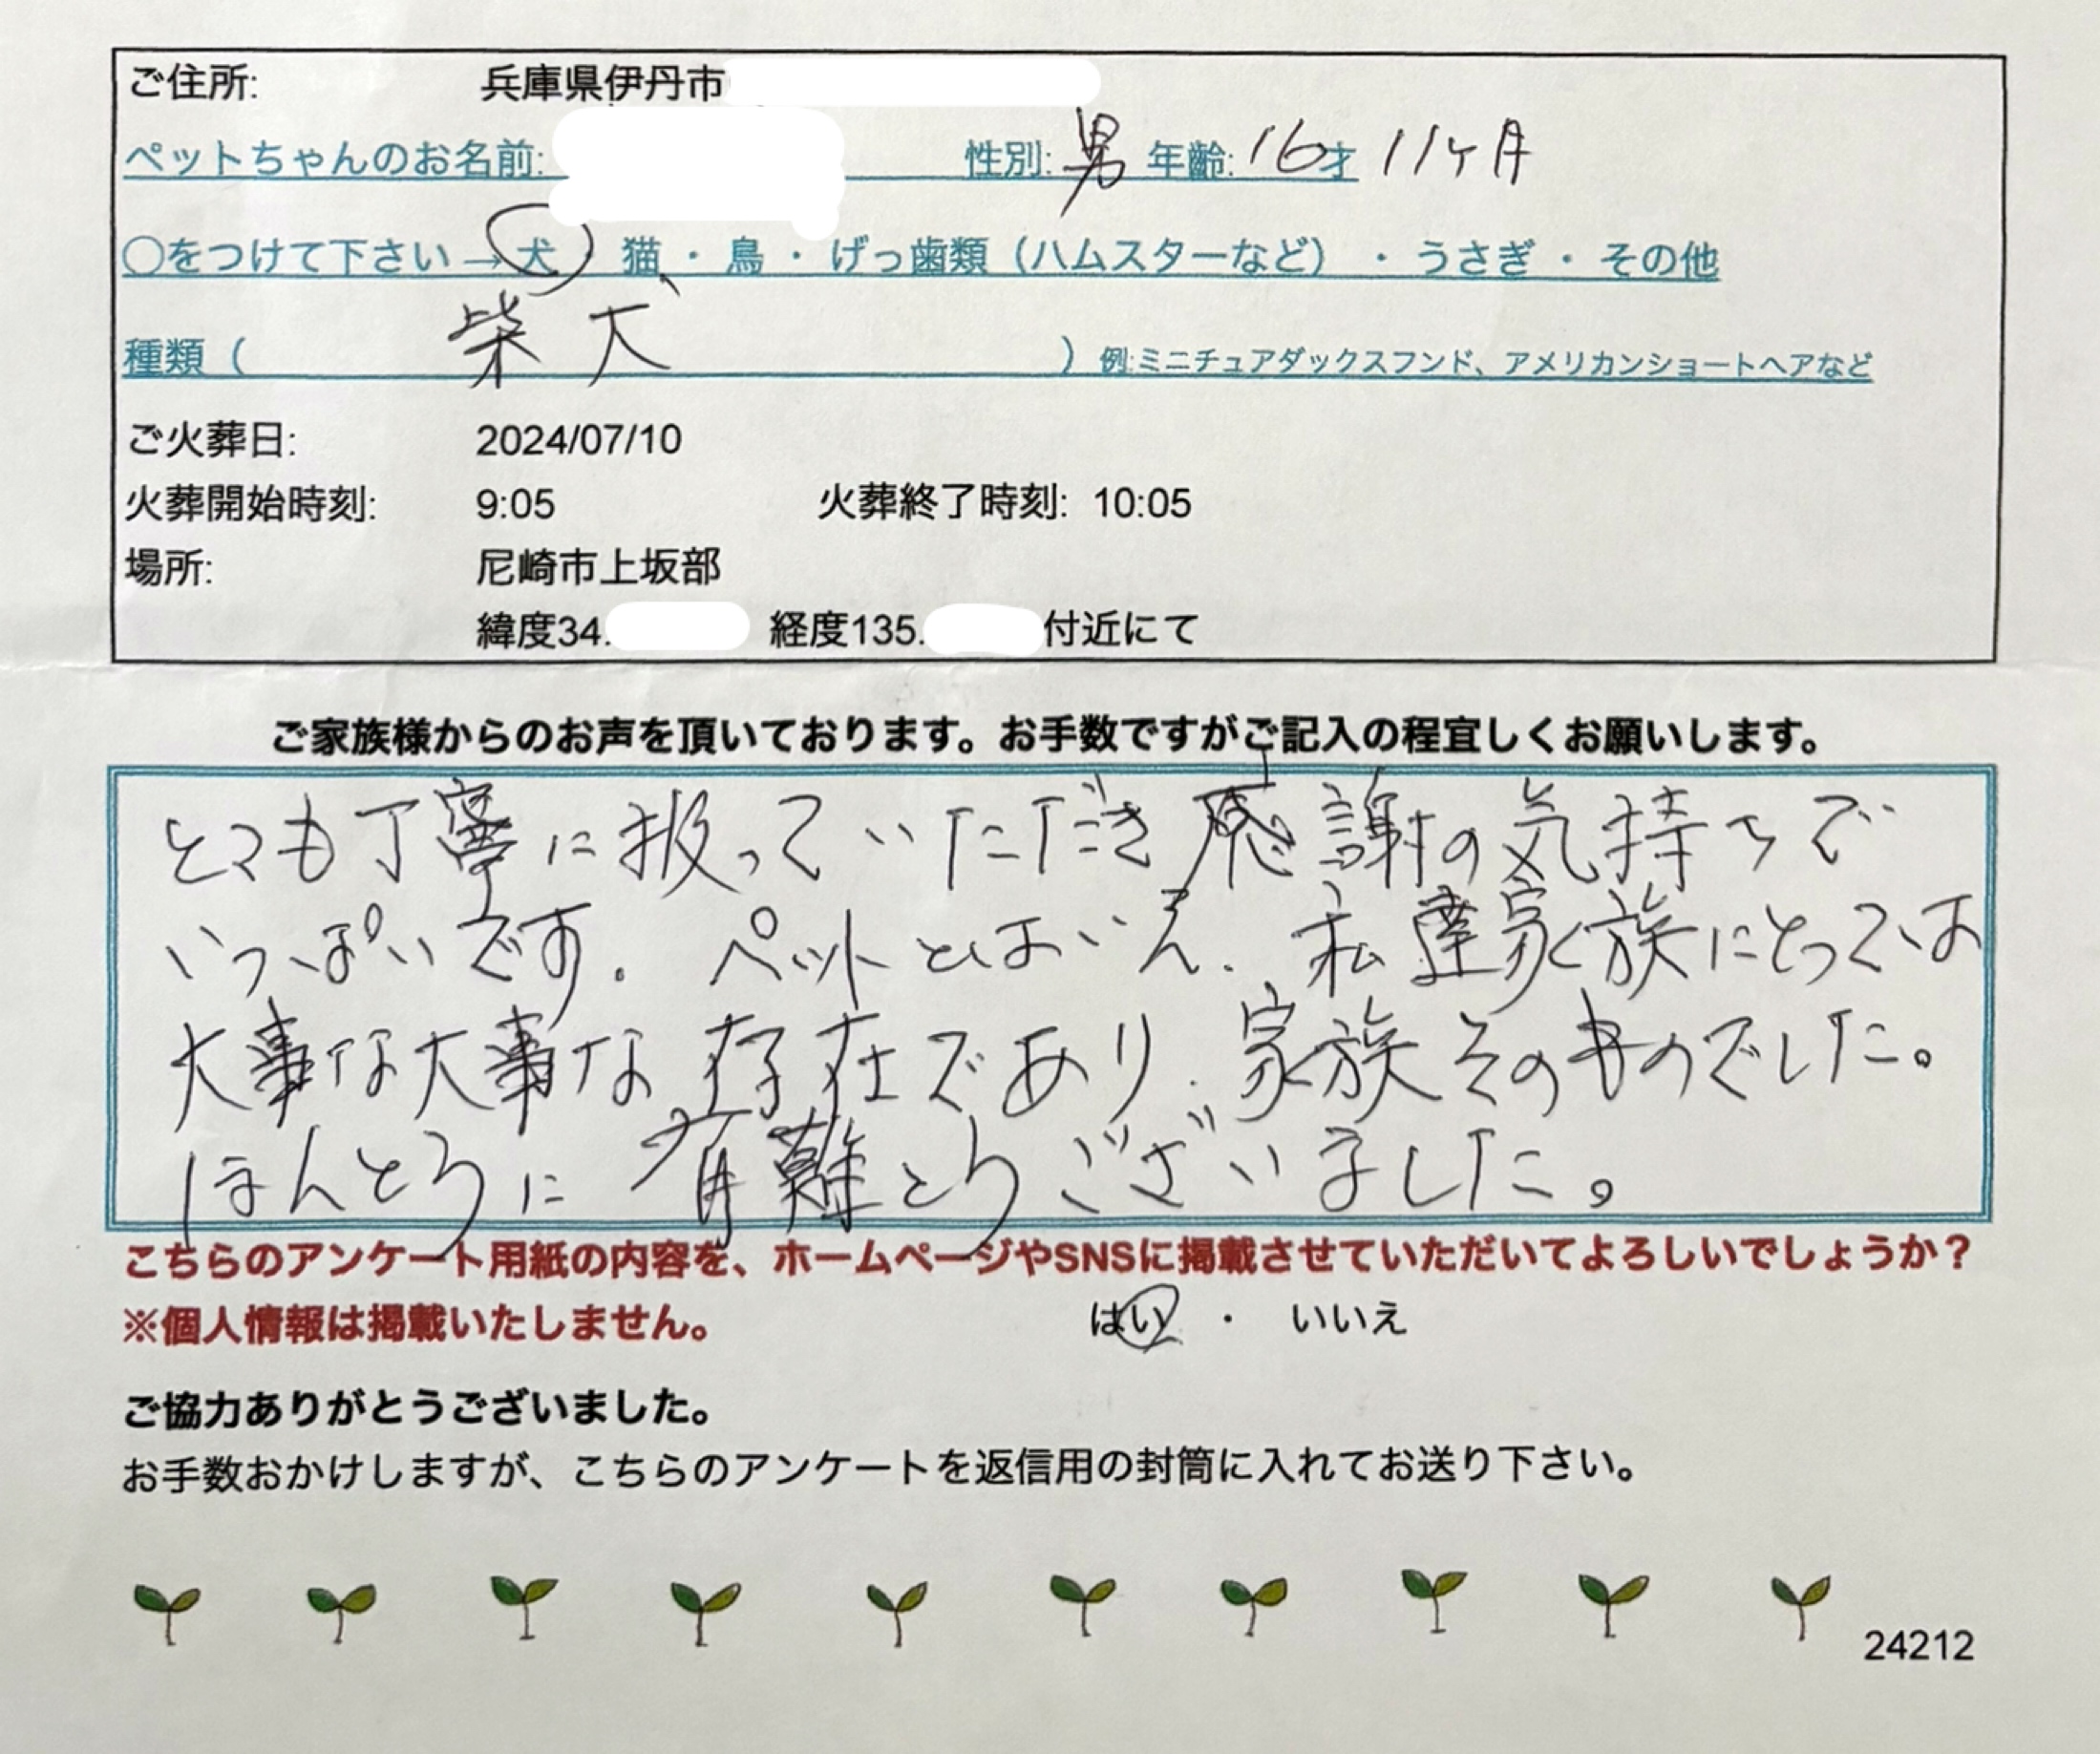 ご住所: 兵庫県伊丹市
ペットちゃんのお名前: 性別: 男 年齢: 16才 11ヶ月
○をつけて下さい→ 犬 ・ 猫 ・ 鳥 ・ げっ歯類（ハムスターなど） ・ うさぎ ・ その他
種類（ 柴犬 ）例:ミニチュアダックスフンド、アメリカンショートヘアなど
ご火葬日: 2024/07/10
火葬開始時刻: 9:05 火葬終了時刻: 10:05
場所: 尼崎市上坂部
緯度34. 経度135. 付近にて
ご家族様からのお声を頂いております。お手数ですがご記入の程宜しくお願いします。
とても丁寧に扱っていただき感謝の気持ちで
いっぱいです。ペットとはいえ、私達家族にとっては
大事な大事な存在であり、家族そのものでした。
ほんとうに有難とうございました。
こちらのアンケート用紙の内容を、ホームページやSNSに掲載させていただいてよろしいでしょうか？
※個人情報は掲載いたしません。 はい ・ いいえ
ご協力ありがとうございました。
お手数おかけしますが、こちらのアンケートを返信用の封筒に入れてお送り下さい。
24212